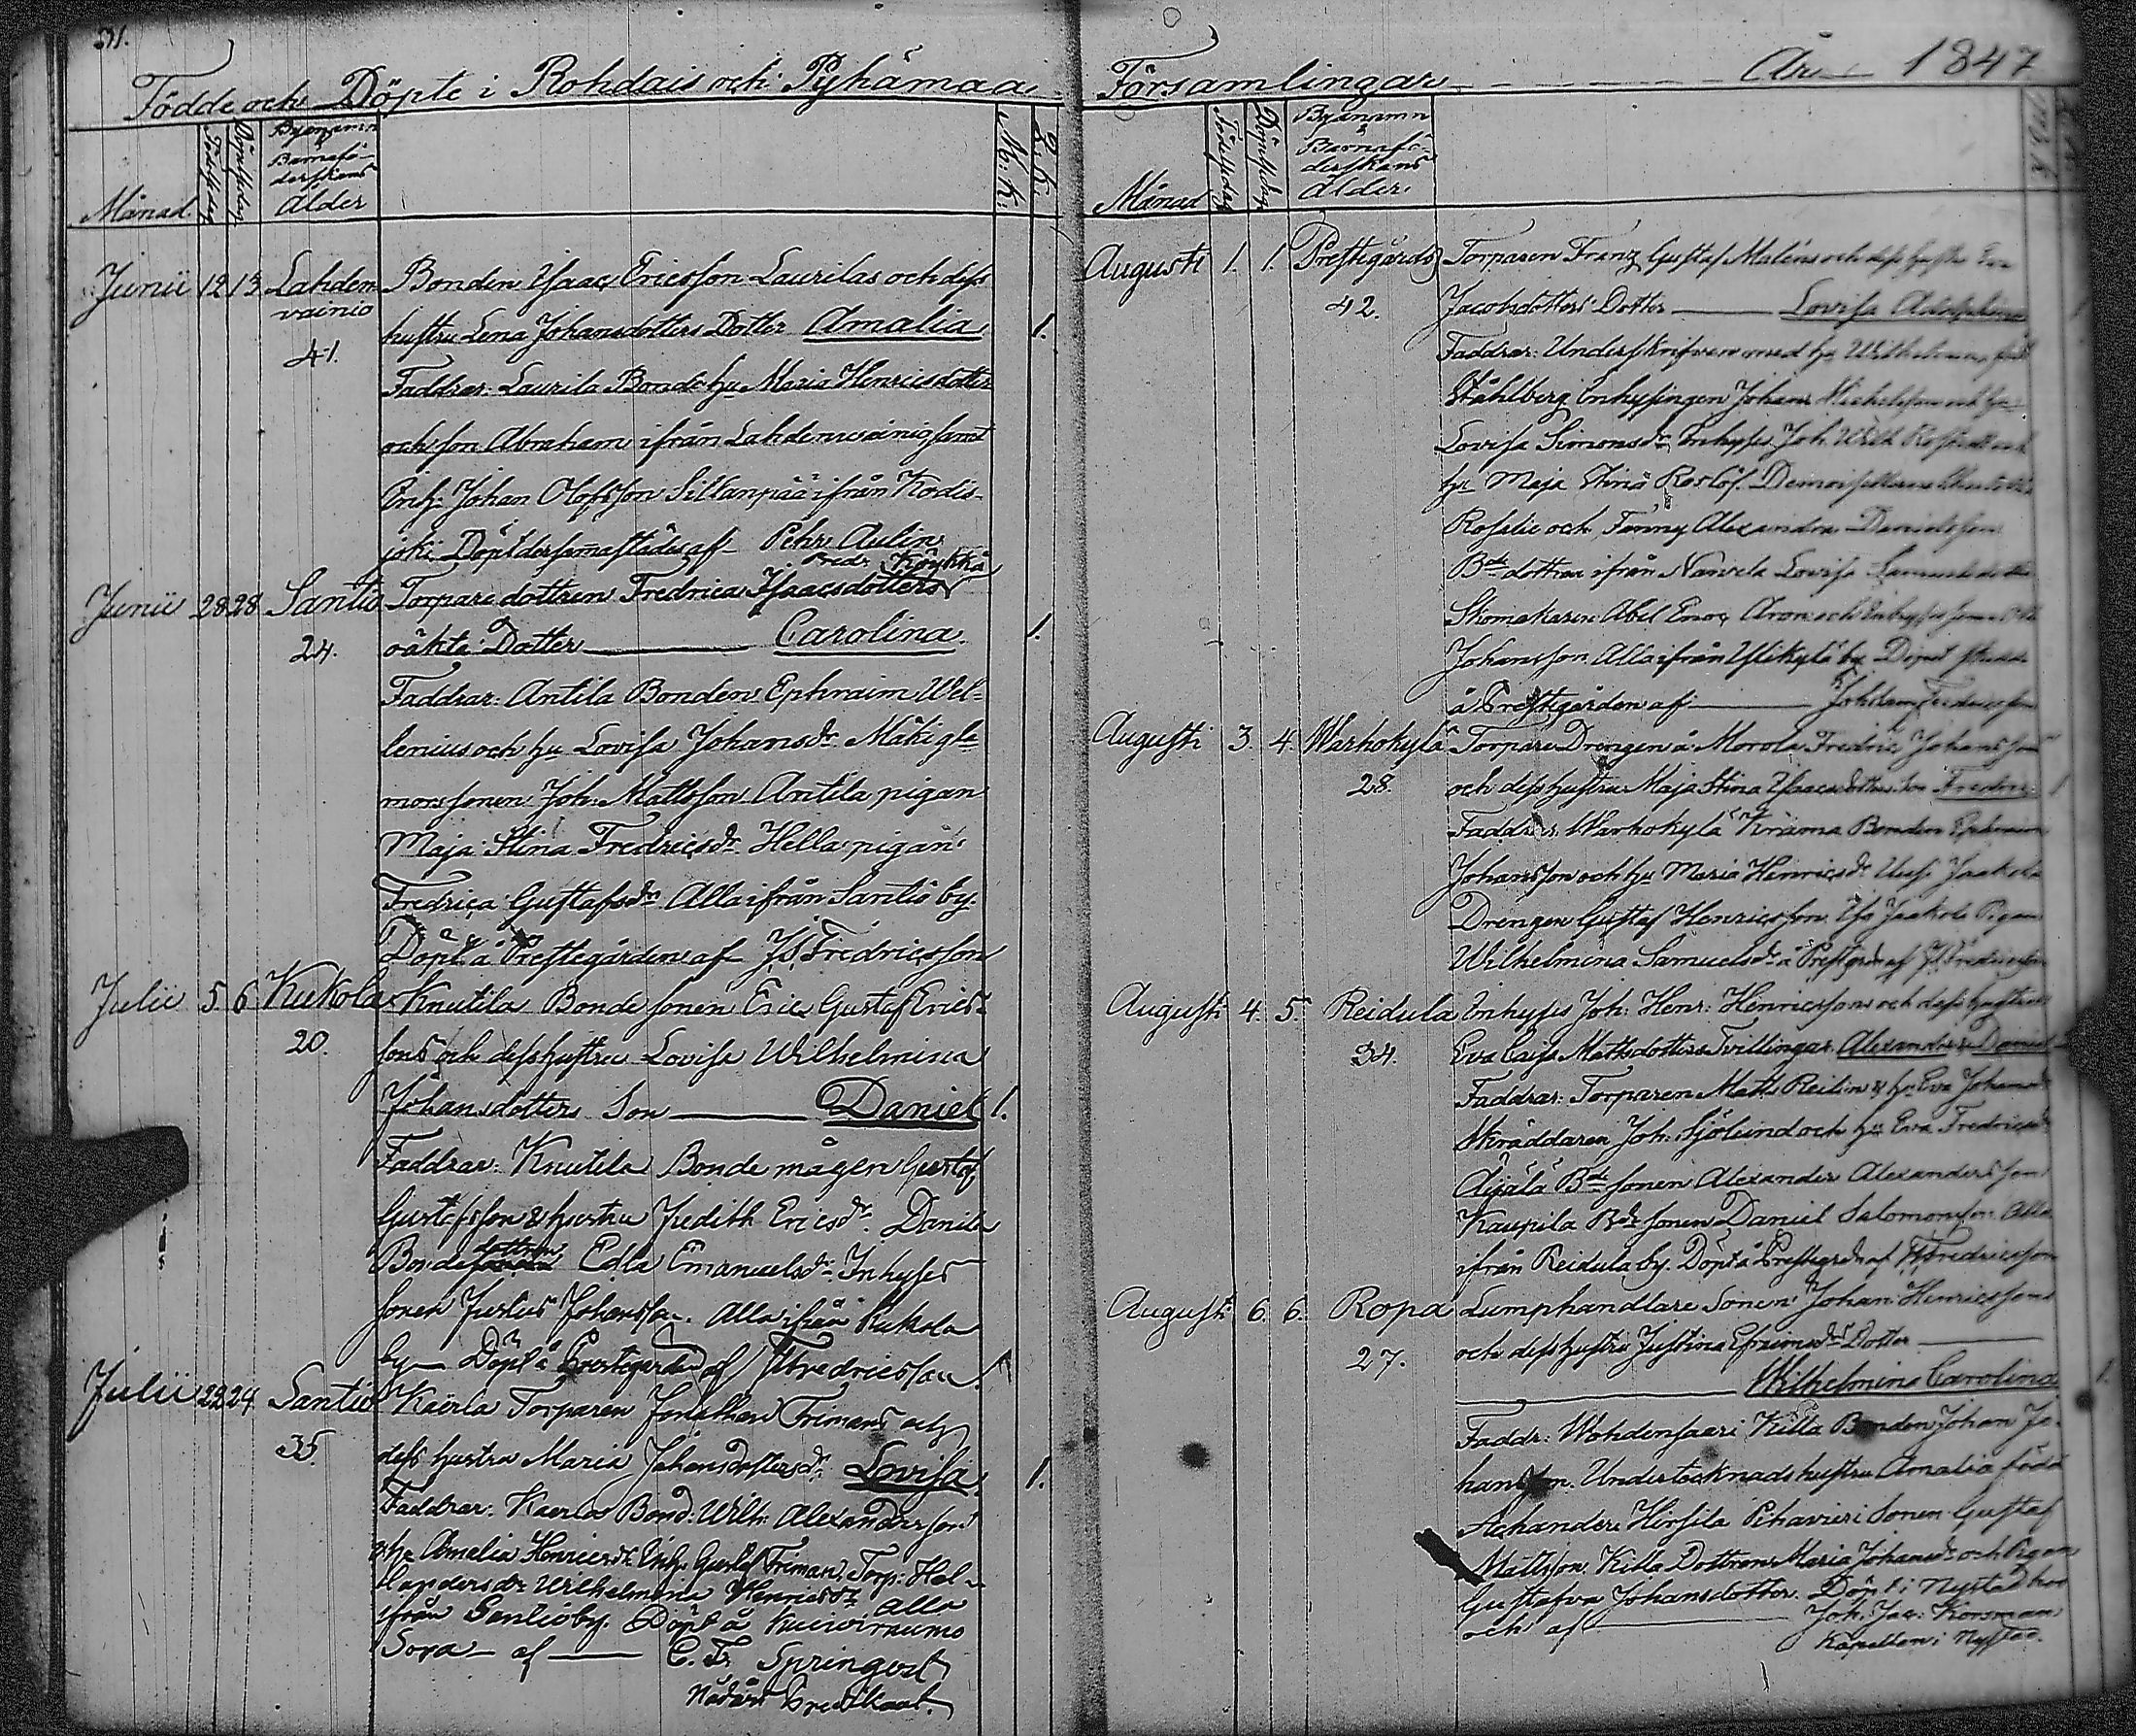 Födde och Döpte i Rohdais och Pyhämaa Församlingar År 1847
Månad Födelsedag Döpelsedag Byanamn Barnaföderskans Ålder M.K. Q.K.
Junii 12 13 Lahdenvainio 41.
Bonden Isaac Ericsson Laurilas och dess
hustru Lena Johansdotters Dotter Amalia 1.
Faddrar: Laurila Bonds hu Maria Henricsdotter
och son Abraham ifrån Lahdenwainio samt
Inh: Johan Olofsson Sillanpää ifrån Kodis-
joki Döpt dersammastädes af Pehr Aulin
Pred: i
Junii 28 28 Santio 24.
Torpare dottren Fredrica Isaacsdotters
oäkta Dotter Carolina 1.
Faddrar: Antila Bonden Ephraim Wel-
lenius och hu Lovisa Johansdr Mäki
sonen Joh: Mattsson Antila pigan
Maja Stina Fredricsdr Hella pigan
Fredrica Gustafsdr Alla ifrån Santio by.
Döpt å Prestegården af Js Fredricsson
Julii 5 6 Kukola 20.
Knutila Bonde sonen Eric Gustaf Erics-
sons och dess hustru Lovisa Wilhelmina
Johansdotters Son Daniel 1.
Faddrar: Knutila Bonde mågen Gustaf
Gustafsson & hustru Judith Ericsdr Danila
Bonde dottren Edla Emanuelsdr Inhyses
sonen Justus Johansson. Alla ifrån Kukola
by Döpt å Prestegården af Js Fredricsson
Julii 22 24 Santio 35.
Kaerla Torparen Jonathan Frimans och
dess hustru Maria Johansdotters dr Lovisa 1.
Faddrar: Kaerlas Bond: Wilh: Alexandersson
& hu Amalia Henricsdr Inh: Gustaf Friman, Torp: Hel-
landers dr Wilhelmina Henricsdr Alla
ifrån Santio by. Döpt å
Sora af C. F. Springert
Nådårs Predikant.
Månad Födelsedag Döpelsedag Byanamn Barnaföderskans Ålder
Augusti 1. 1. Prestegårds 42.
Torparen Franz Gustaf Maléns och dess hustru Eva
Jacobsdotters Dotter Lovisa Adolphina
Faddrar: Underskrifven med hu Wilhelmina född
Ståhlberg Inhysingen Johan Michelsson och hu
Lovisa Simonsdr Inhyses Joh. Wilh och
hu Maja Stina Roslöf. Demoisellerna
Rosalie och Fanny Alexandra Danielsson
Bde dottren ifrån Lovisa Samuelsdotter
Skomakaren Abel Enoc Aron och Inhyses sonen
Johansson Alla ifrån Ylikylä by Döpt
å Prestgården af Fredricsson
Augusti 3. 4. Warhokylä 28.
Torpare Drengen å Morola Fredric Johansson
och dess hustru Maja Stina Isaacsdotters Son Fredric 1
Faddrar Warhokylä Krama Bonden Ephraim
Johansson och hu Maria Henricsdr Uusi Jaakola
Drengen Gustaf Henricsson Iso Jaakola Pigan
Wilhelmina Samuelsdr å Prestgrdn af Js Fredricsson
Augusti 4. 5. Reidula 34.
Inhyses Joh: Henr: Henricssons och dess hustrus
Eva Caisa Mattsdotters Tvillingar Alexander & Daniel
Faddrar: Torparen Matts Reilin & hu Eva Johansdr
Skräddaren Joh: Sjölund och hu Eva Fredricsdr
Äijälä Bde sonen Alexander Alexandersson
Kaupila Bde sonen Daniel Salomonsson Alla
ifrån Reidula by. Döpt å Prestegrdn af Js Fredricsson
Augusti 6. 6. Ropa 27.
Lumphandlare Sonen Johan Henricssons
och dess hustru Justina Efraimsdrs Dotter
Wilhelmina Carolina 1.
Faddr: Wohdensaari Killa Bonden Johan Jo-
hansson. Undertecknads hustru Amalia född
Achander Hirsila Sonen Gustaf
Mattsson Killa Dottren Maria Johansdr och Pigan
Gustafva Johansdotter. Döpt i Nystad hos
och af Joh. Jac: Korsman
Kapellan i Nystad.